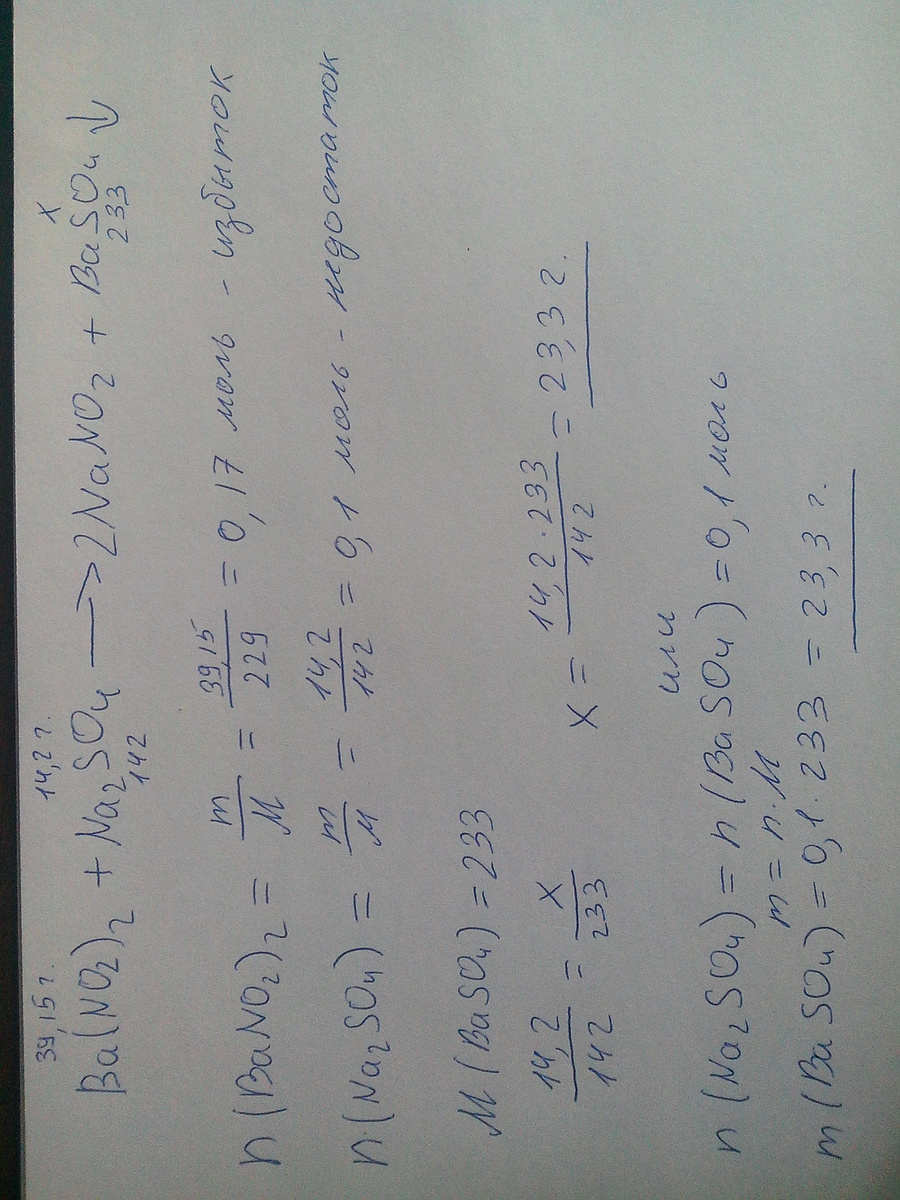 39,15 г. 14,2 г. x
Ba(NO2)2 + Na2SO4 → 2NaNO2 + BaSO4↓
142 233
n(BaNO2)2 = m/M = 39,15/229 = 0,17 моль - избыток
n(Na2SO4) = m/M = 14,2/142 = 0,1 моль - недостаток
M(BaSO4) = 233
14,2/142 = x/233 x = 14,2·233/142 = 23,3 г.
или
n(Na2SO4) = n(BaSO4) = 0,1 моль
m = n·M
m(BaSO4) = 0,1·233 = 23,3 г.